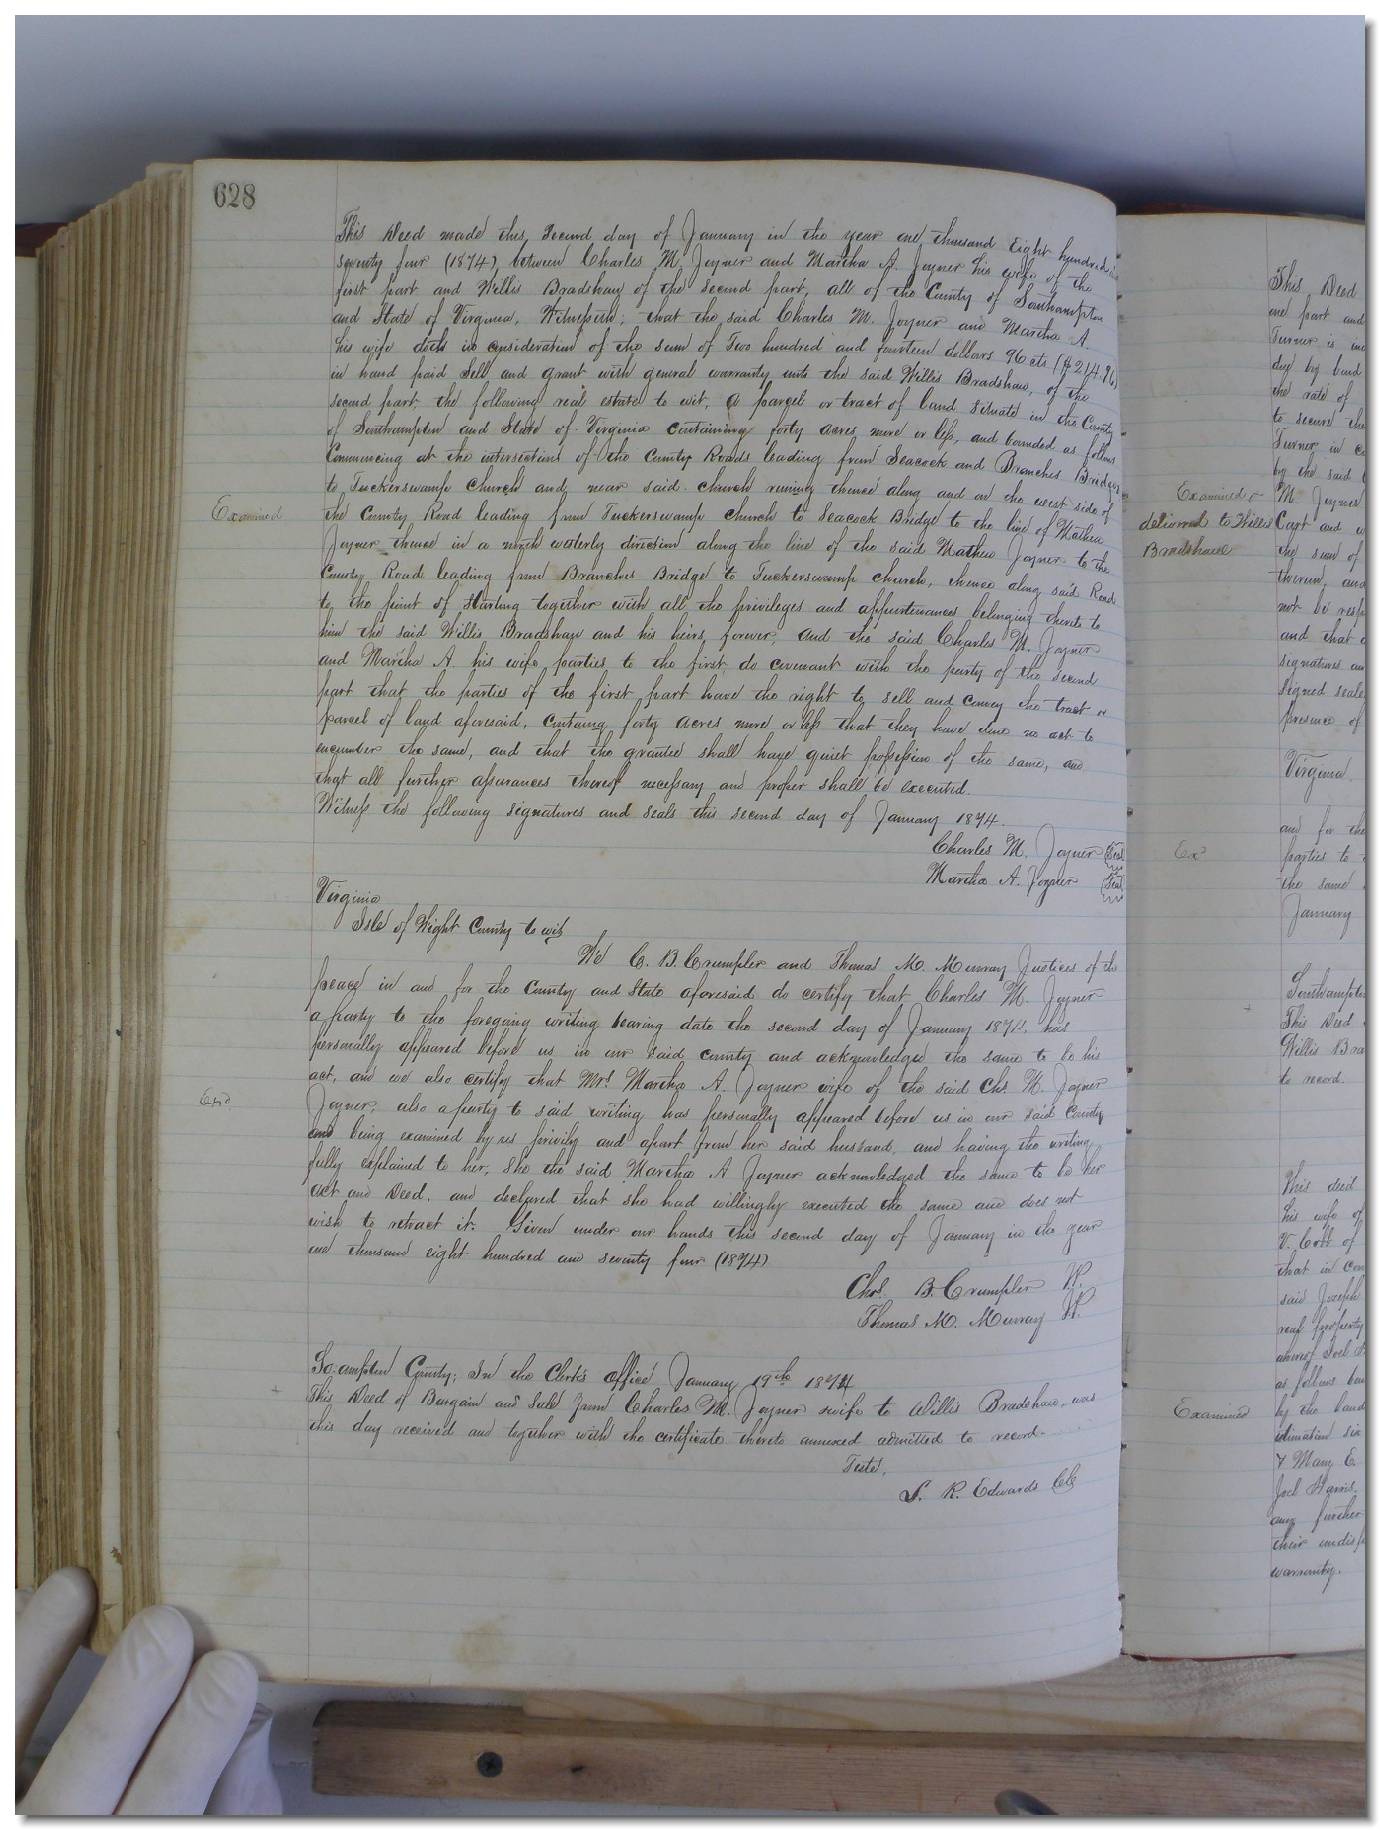 628
This Deed made this second day of January in the year one thousand Eight hundred and
seventy four (1874), between Charles M. Joyner and Martha A. Joyner his wife of the
first part and Willis Bradshaw of the second part, all of the County of Southampton
and State of Virginia, Witnesseth; that the said Charles M. Joyner and Martha A.
his wife doth in consideration of the sum of Two hundred and fourteen dollars 96 cts ($214.96)
in hand paid sell and grant with general warranty unto the said Willis Bradshaw, of the
second part, the following real estate to wit, a parcel or tract of land situate in the County
of Southampton and State of Virginia containing forty acres more or less, and bounded as follows
Commencing at the intersection of the County Roads leading from Seacock and Branches Bridges
to Tuckerswamp Church and near said church runing thence along and on the west side of
the County Road leading from Tuckerswamp church to Seacock Bridge to the line of Mathew
Joyner thence in a north westerly direction along the line of the said Mathew Joyner to the
County Road leading from Branches Bridge to Tuckerswamp church, thence along said Road
to the point of starting together with all the privileges and appurtenances belonging thereto to
him the said Willis Bradshaw and his heirs forever, and the said Charles M. Joyner
and Martha A. his wife parties to the first do covenant with the party of the second
part that the parties of the first part have the right to sell and convey the tract or
parcel of land aforesaid, containg forty acres more or less that they have done no act to
encumber the same, and that the grantee shall have quiet possession of the same, and
that all further assurances thereof necessary and proper shall be executed.
Witness the following signatures and seals this second day of January 1874.
Charles M. Joyner (Seal
Martha A. Joyner (Seal
Virginia
Isle of Wight County to wit
We C. B. Crumpler and Thomas M. Murray Justices of the
peace in and for the County and State aforesaid do certify that Charles M. Joyner
a party to the foregoing writing bearing date the second day of January 1874, has
personally appeared before us in our said county and acknowledged the same to be his
act, and we also certify that Mrs. Martha A. Joyner wife of the said Chs. M. Joyner
Joyner, also a party to said writing has personally appeared before us in our said County
and being examined by us privily and apart from her said husband, and having the writing
fully explained to her, she the said Martha A Joyner acknowledged the same to be her
act and Deed, and declared that she had willingly executed the same and does not
wish to retract it. Given under our hands this second day of January in the year
one thousand eight hundred and seventy four (1874)
Chs. B. Crumpler J.P.
Thomas M. Murray J.P.
So.ampton County; In the Clerk's office January 19th 1874
This Deed of Bargain and Sale from Charles M. Joyner & wife to Willis Bradshaw, was
this day received and together with the certificate thereto annexed admitted to record.
Teste,
L. R. Edwards CC
Examined
Exd
Examined &
delivered to Willis
Bradshaw
Exd
Examined
This Deed
one part and
Turner is in
day by bond
the rate of
to secure the
Turner in
by the said
M. Joyner
Capt and
the sum of
thereon, and
not be resp
and that
signatures an
Signed seale
presence of
Virginia
and for the
parties to
the same
January
Southampto
This Deed
Willis Bra
to record.
This deed
his wife of
V. Cobb of
that in con
said Joseph
real property
as follows
by the land
& Mary E.
Joel Harris
any further
their undis
warranty.